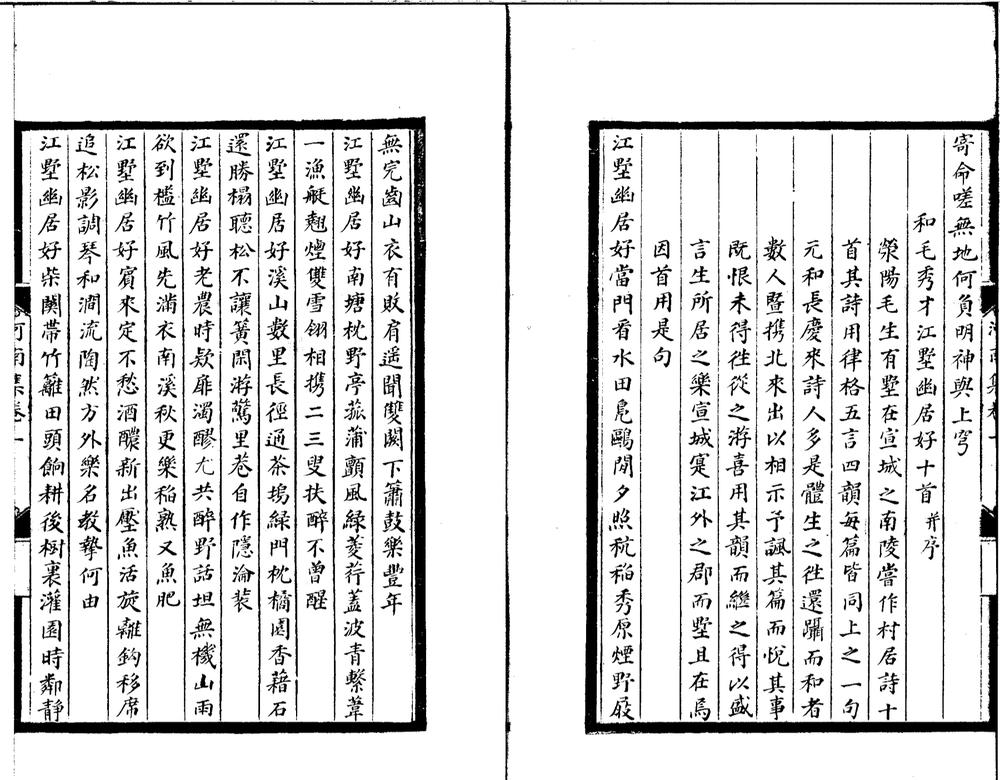 寄命嗟無地何負明神與上穹
和毛秀才江墅幽居好十首并序
滎陽毛生有墅在宣城之南陵嘗作村居詩十
首其詩用律格五言四韻每篇皆同上之一句
元和長慶來詩人多是體生之徃還躡而和者
數人暨携北來出以相示予諷其篇而悅其事
既恨未得徃從之游喜用其韻而繼之得以盛
言生所居之樂宣城寔江外之郡而墅且在焉
因首用是句
江墅幽居好當門看水田鳬鷗閒夕照秔稻秀原煙野屐
無完齒山衣有敗肩遥聞雙闕下簫鼓樂豐年
江墅幽居好南塘枕野亭菰蒲顫風緑菱荇蓋波青繫葦
一漁艇翹煙雙雪翎相携二三叟扶醉不曾醒
江墅幽居好溪山數里長徑通茶塢緑門枕橘園香藉石
還勝榻聽松不讓簧閑游鷩里巷自作隱淪裝
江墅幽居好老農時欵扉濁醪尤共醉野話坦無機山雨
欲到檻竹風先滿衣南溪秋更樂稻熟又魚肥
江墅幽居好賓來定不愁酒醲新出壓魚活旋離鈎移席
追松影調琴和澗流陶然方外樂名教摯何由
江墅幽居好柴關帶竹籬田頭餉耕後樹裏灌園時鄰靜
河南集卷一